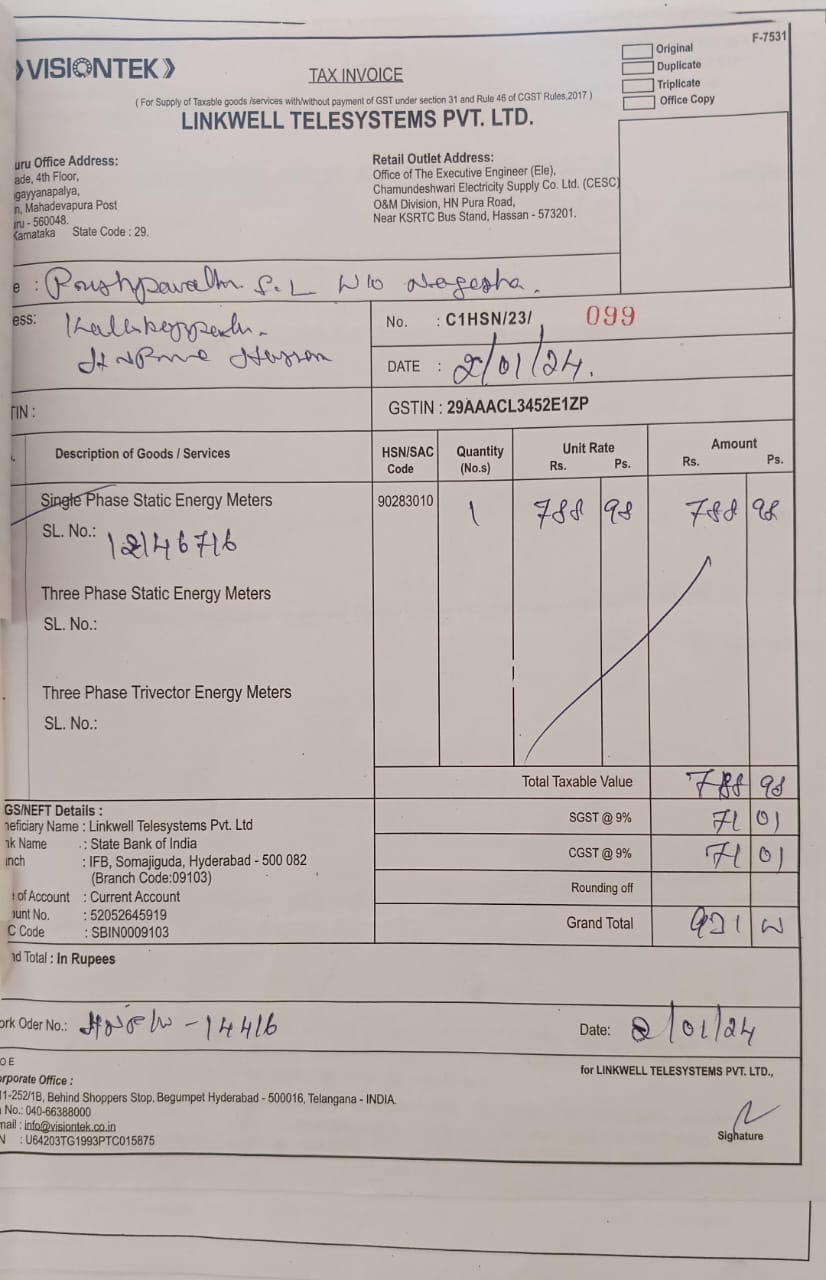 F-7531
Original
Duplicate
Triplicate
Office Copy
VISIONTEK
TAX INVOICE
( For Supply of Taxable goods /services with/without payment of GST under section 31 and Rule 46 of CGST Rules,2017 )
LINKWELL TELESYSTEMS PVT. LTD.
uru Office Address:
ade, 4th Floor,
gayyanapalya,
n, Mahadevapura Post
uru - 560048.
Karnataka State Code : 29.
Retail Outlet Address:
Office of The Executive Engineer (Ele),
Chamundeshwari Electricity Supply Co. Ltd. (CESC)
O&M Division, HN Pura Road,
Near KSRTC Bus Stand, Hassan - 573201.
e : S.L W/o Nagesha.
ess:
Hassan
No. : C1HSN/23/ 099
DATE : 2/01/24.
TIN :
GSTIN : 29AAACL3452E1ZP
Description of Goods / Services HSN/SAC Code Quantity (No.s) Unit Rate Rs. Ps. Amount Rs. Ps.
Single Phase Static Energy Meters 90283010 1 788 98 788 98
SL. No.: 12146716
Three Phase Static Energy Meters
SL. No.:
Three Phase Trivector Energy Meters
SL. No.:
Total Taxable Value 788 98
SGST @ 9% 71 01
CGST @ 9% 71 01
Rounding off
Grand Total 931
GS/NEFT Details :
neficiary Name : Linkwell Telesystems Pvt. Ltd
nk Name : State Bank of India
anch : IFB, Somajiguda, Hyderabad - 500 082
(Branch Code:09103)
of Account : Current Account
ount No. : 52052645919
C Code : SBIN0009103
nd Total : In Rupees
ork Oder No.: - 14416
Date: 2/01/24
O E
for LINKWELL TELESYSTEMS PVT. LTD.,
orporate Office :
11-252/1B, Behind Shoppers Stop, Begumpet Hyderabad - 500016, Telangana - INDIA.
No.: 040-66388000
mail : info@visiontek.co.in
N : U64203TG1993PTC015875
Signature